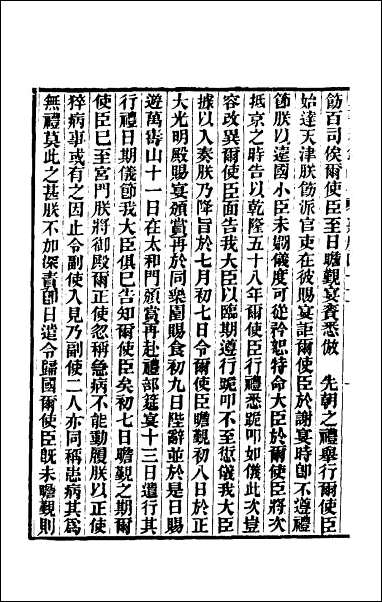 飭百司俟爾使臣至日瞻覲宴賚悉倣　先朝之禮舉行爾使臣
始達天津朕飭派官吏在彼賜宴詎爾使臣於謝宴時卽不遵禮
節朕以遠國小臣未嫻儀度可從矜恕特命大臣於爾使臣將次
抵京之時告以乾隆五十八年爾使臣行禮悉跪叩如儀此次豈
容改異爾使臣面告我大臣以臨期遵行跪叩不至愆儀我大臣
據以入奏朕乃降旨於七月初七日令爾使臣瞻覲初八日於正
大光明殿賜宴頒賞再於同樂園賜食初九日陛辭並於是日賜
遊萬壽山十一日在太和門頒賞再赴禮部筵宴十三日遣行其
行禮日期儀節我大臣俱已告知爾使臣矣初七日瞻覲之期爾
使臣已至宮門朕將御殿爾正使忽稱急病不能動履朕以正使
猝病事或有之因止令副使入見乃副使二人亦同稱患病其爲
無禮莫此之甚朕不加深責卽日遣令歸國爾使臣旣未瞻覲則